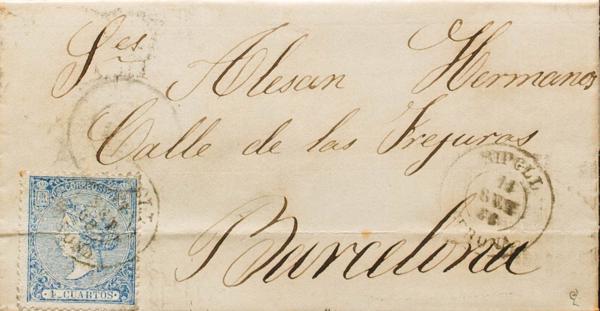 S.es Alesan Hermanos
Calle de las Frejuras
Barcelona
RIPOLL
14
SET
66
GERONA
CORREOS
4 CUARTOS